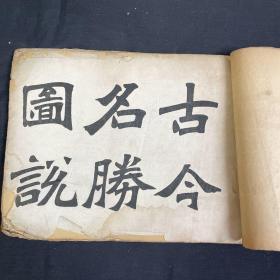 古今
名勝
圖說